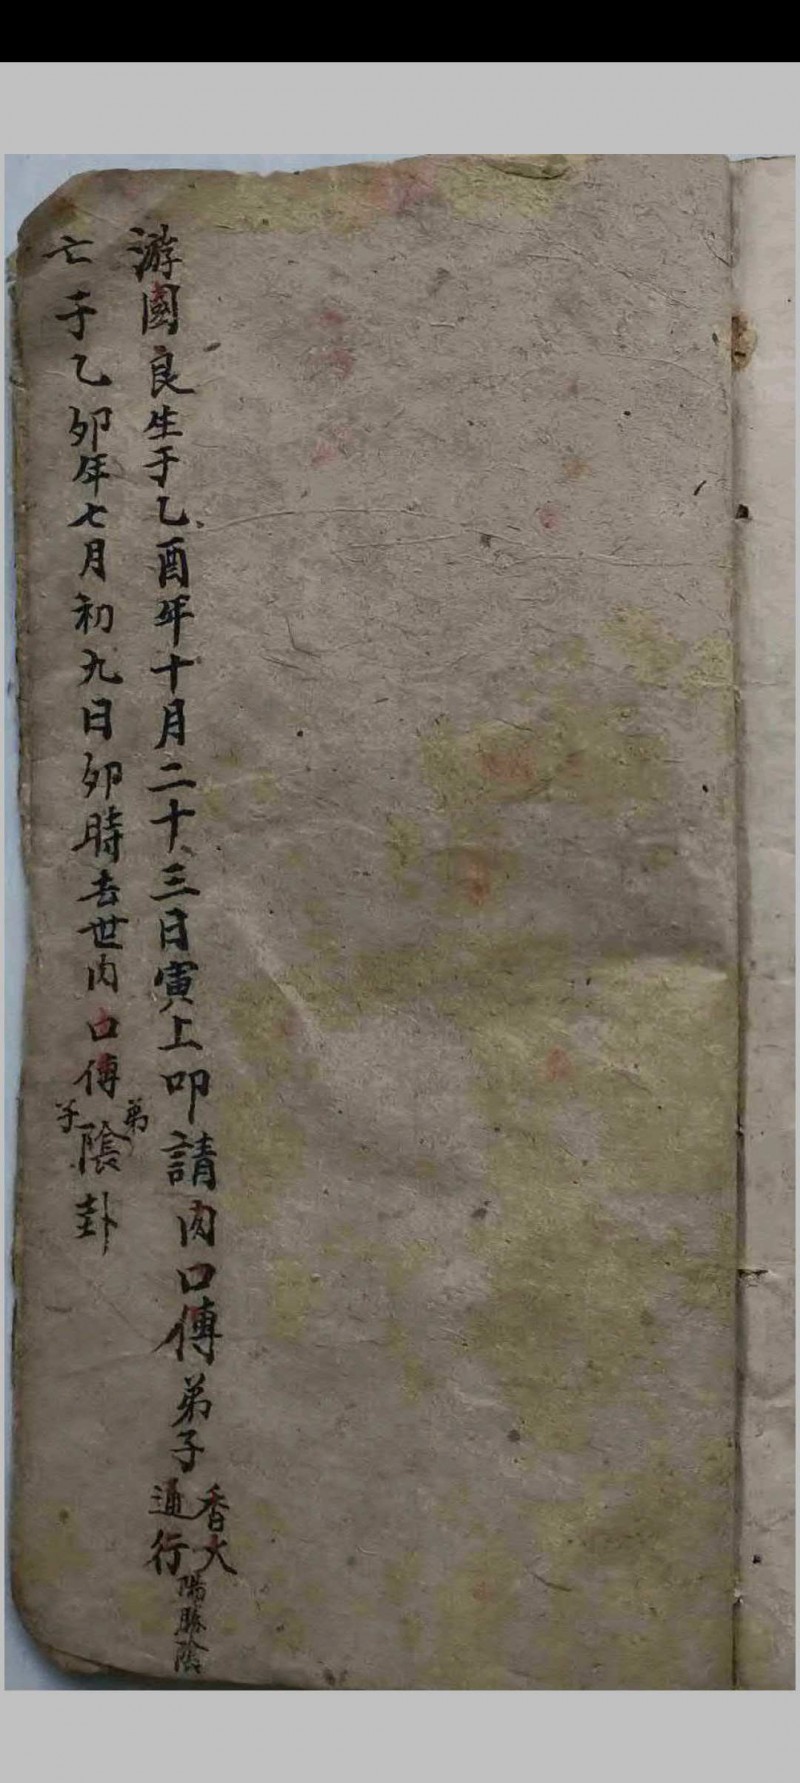 游國良生于乙酉年十月二十三日寅上叩請内口傳弟子
香火
通行
陽勝陰
亡于乙卯年七月初九日卯時去世内口傳
弟
子
陰卦